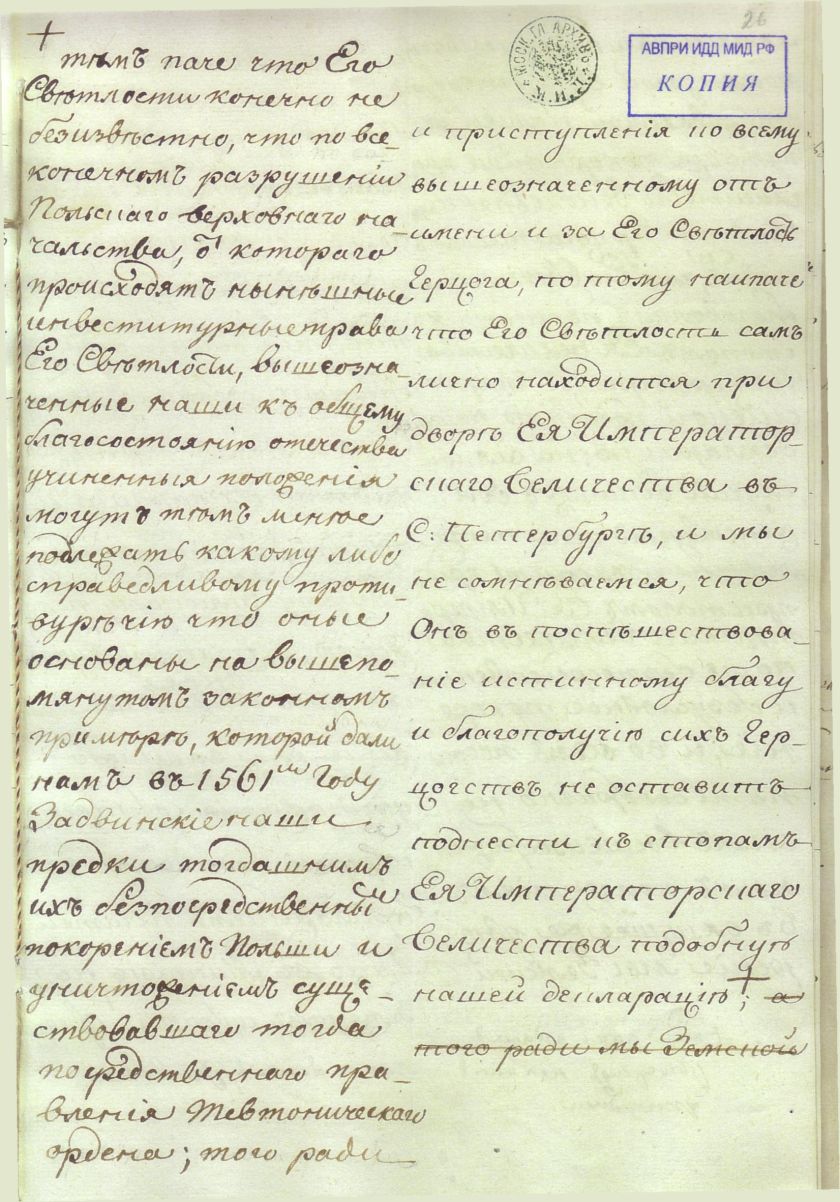 26
АВПРИ ИДД МИД РФ
КОПИЯ
и приступленія по всему
вышеозначенному отъ
имени и за Его Свѣтлость
Герцога, по тому наипаче
что Его Свѣтлость самъ
лично находится при
дворѣ Ея Император-
скаго Величества въ
С: Петербургѣ, и мы
не сомнѣваемся, что
Онъ въ поспѣшествова-
ніе истинному благу
и благополучію сихъ Гер-
цогствъ не оставитъ
поднести къ стопамъ
Ея Императорскаго
Величества подобную
нашей декларацію+; а
того ради мы Земской
+
тѣмъ паче что Его
Свѣтлости конечно не
безизвѣстно, что по все-
конечномъ разрушеніи
Польскаго верховнаго на-
чальства, от котораго
происходятъ нынѣшные
инвеститурные права
Его Свѣтлости, вышеозна-
ченные наши къ общему
благосостоянію отечества
учиненныя положенія
могутъ тѣмъ менѣе
подлежать какому либо
справедливому проти-
вурѣчію что оные
основаны на вышепо-
мянутомъ законномъ
примѣрѣ, которой дали
намъ въ 1561мъ Году
Задвинскіе наши
предки тогдашнимъ
ихъ безпосредственнымъ
покореніемъ Польши и
уничтоженіемъ суще-
ствовавшаго тогда
посредственнаго пра-
вленія Тевтоническаго
ордена; того ради